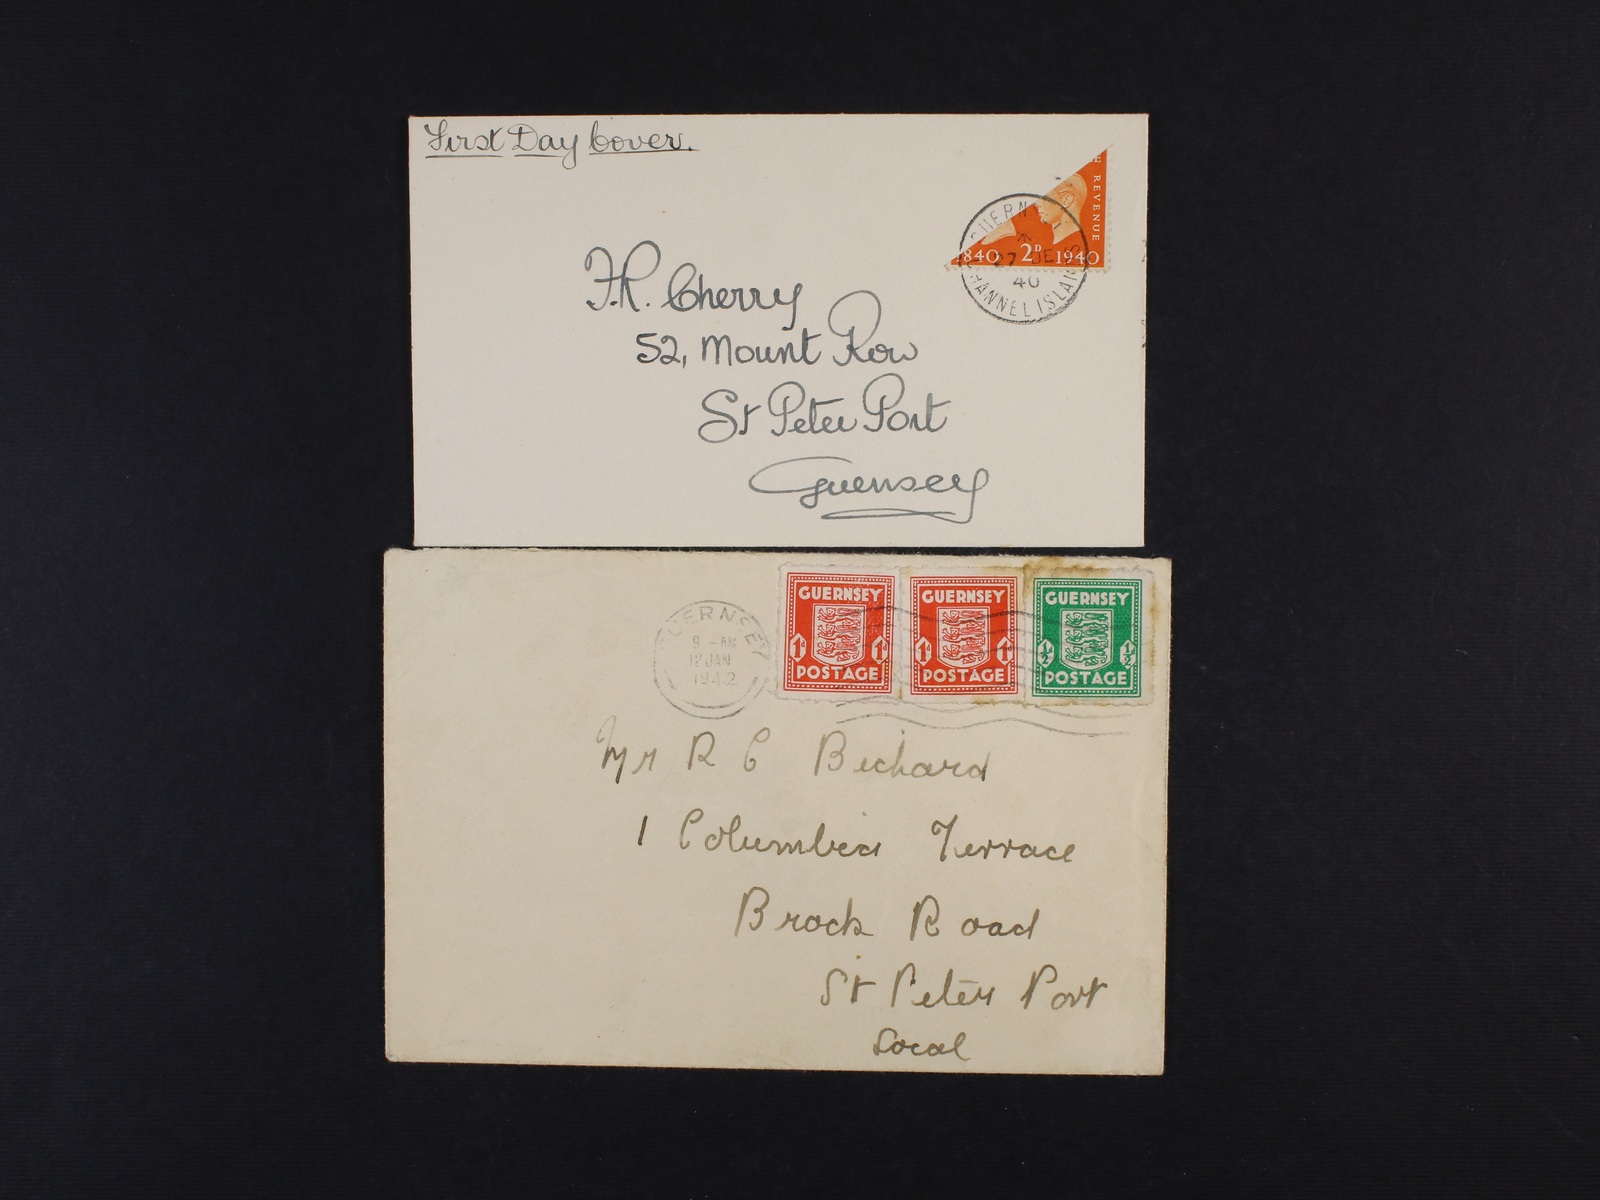 First Day Cover.
E REVENUE
840 2D 1940
GUERN
27 DE
40
CHANNEL ISLANDS
F.R. Cherry
52, Mount Row
St Peter Port
Guernsey
GUERNSEY
9 - AM
12 JAN
1942
GUERNSEY
1D 1D
POSTAGE
GUERNSEY
1D 1D
POSTAGE
GUERNSEY
½ ½
POSTAGE
Mr R C Bichard
1 Columbia Terrace
Brock Road
St Peter Port
Local